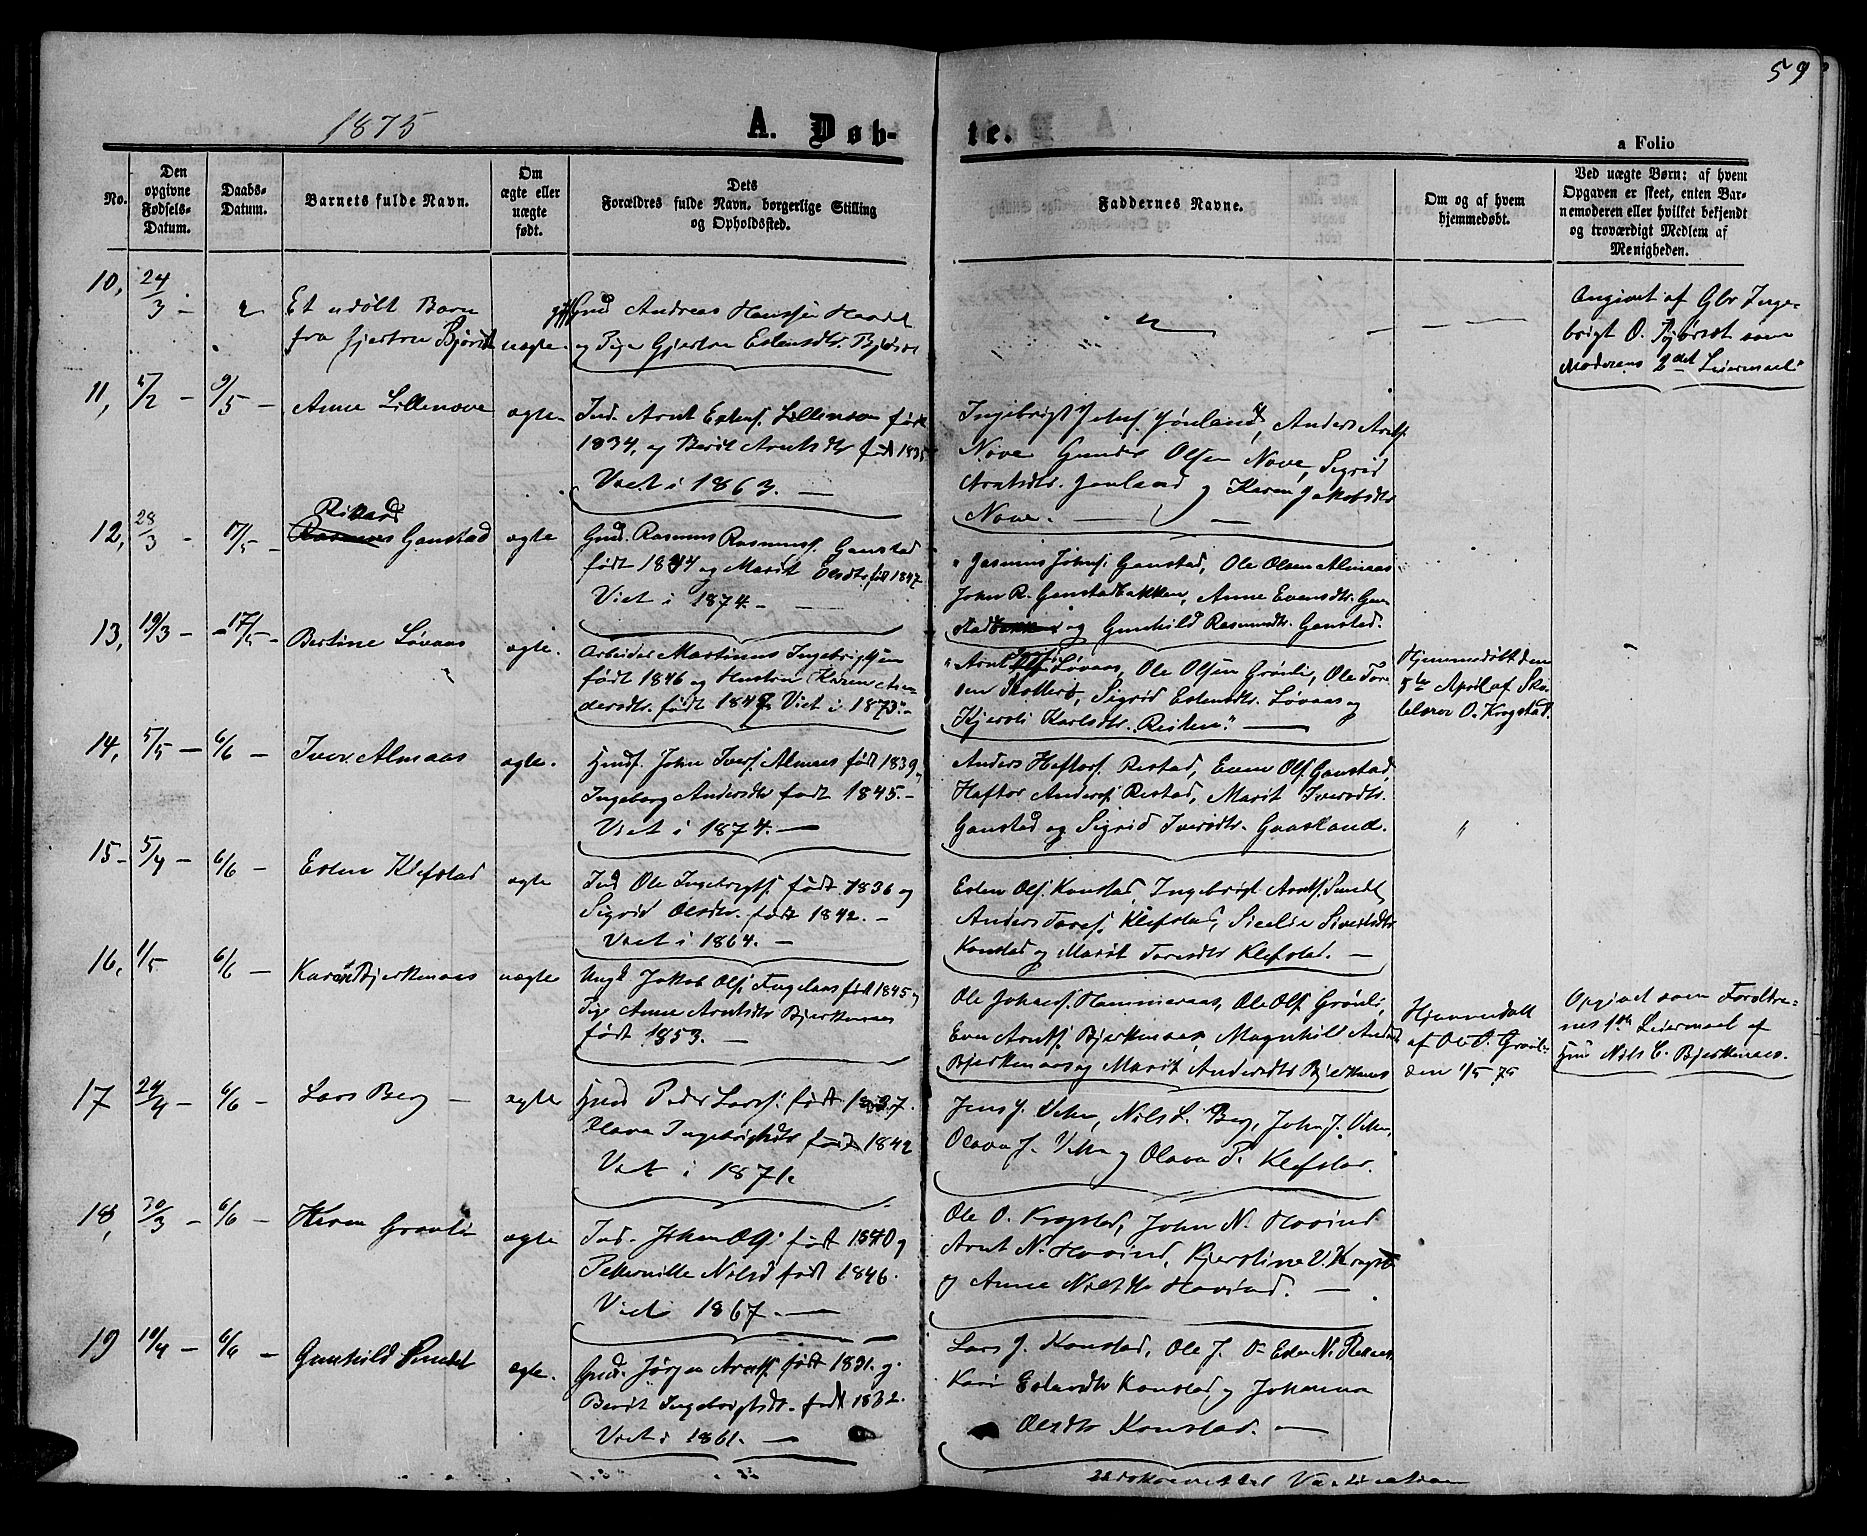 59
1875
A. Døb-
te.
a Folio
No.
Den
opgivne
Fødsels-
Datum.
Daabs-
Datum.
Barnets fulde Navn.
Om
ægte eller
uægte
født.
Dets
Forældres fulde Navn, borgerlige Stilling
og Opholdssted.
Faddernes Navne.
Om og af hvem
hjemmedøbt.
Ved uægte Børn: af hvem
Opgaven er skeet, enten Bar-
nemoderen eller hvilket bekjendt
og troværdigt Medlem af
Menigheden.
10, 24/3 -
Et udøbt Barn
fra
uægte.
Andreas Hanssen
og Pige Gjertru Estensdtr.
Angivet af Gbr Inge-
brigt O. som
Moderens 2det Leiermaal
11, 5/2 - 9/5 -
Anne Lillenove
ægte
Ind. Arnt Estens. Lillenove født
1834, og Berit Arntsdtr født 1835
Viet i 1863. -
Ingebrigt Johns. Jønland, Anders Arntss.
Nove Gunder Olsen Nove, Sigrid
Arntsdtr. Jønland og Karen Jakobsdtr
Nove. -
12, 28/3 - 17/5 -
Rikard
Rasmus Ganstad
ægte
Gmd. Rasmus Rasmuss. Ganstad
født 1844 og Marit Olsdtr. født 1847
Viet i 1874. -
Rasmus Johns. Ganstad, Ole Olsen Almaas
John R. Ganstadbakken, Anne Evensdtr. Gan-
stad og Gunhild Rasmusdtr. Ganstad.
13, 19/3 - 17/5 -
Bertine Løvaas
ægte.
Arbeider Martinus Ingebrigtsen
født 1846 og Hustru Karen An-
dersdtr. født 1848 Viet i 1873. -
Arnt Løvaas, Ole Olsen Grønli, Ole To-
sen Sigrid Estensdtr. Løvaas og
Kjersti Karlsdtr. -
Hjemmedøbt den
5te April af Sko-
lelærer O. Krogstad.
14, 5/5 - 6/6 -
Iver Almaas
ægte.
Hmd. John Ivers. Almaas født 1839 og
Ingeborg Andersdtr født 1845. -
Viet i 1874. -
Anders Haftors. Restad, Even Ols. Ganstad,
Haftor Anders. Restad, Marit Iversdtr.
Ganstad og Sigrid Iversdtr. Gaasland.
15 - 5/4 - 6/6 -
Esten Klefstad
ægte
Ind Ole Ingebrigts. født 1836 og
Sigrid Olsdtr. født 1842. -
Viet i 1864. -
Esten Ols. Konstad, Ingebrigt Arnts. Sundt
Anders Tores. Klefstad, Sicelie Sivertsdtr
Konstad og Marit Toresdtr Klefstad. -
16, 1/5 6/6 -
Karen Bjerkenaas
uægte
Ungk Jakob Ols. født 1845 og
Pige Anne Arntsdtr Bjerkenaas
født 1853. -
Ole Johnss. Hammeraas, Ole Ols. Grønli,
Even Arnts. Bjerkenaas, Magnhild
Bjerkenaas og Marit Andersdtr Bjerkenaas
Hjemmedøbt
af Ole O. Grønli
den 1/5 75
Opgivet som Foreldre-
nes 1ste Leiermaal af
Gmd Nils C. Bjerkenaas.
17 24/4 - 6/6 -
Lars Berg -
ægte
Hmd Peder Larss. født 1837.
Olava Ingebrigtsdtr født 1842
Viet i 1871.
Jens J. Vehn, Nils L. Berg, John J. Vehn,
Olava J. Vehn og Olava P. Klefstad.
18, 30/3 - 6/6 -
Karen Grønli
ægte
Ind. Johan Ols. født 1840 og
Petternille Nilsd født 1846.
Viet 1867. -
Ole O. Krogstad, John N. Hovind
Arnt N. Hovind, Kjerstine O. Krogst.
og Anne Nilsdtr Hovind. -
19 10/4 - 6/6 -
Gunhild Sundet
ægte.
Gmd. Jørgen Arnts. født 1831. og
Berit Ingebrigtsdtr. født 1832.
Viet i 1861. -
Lars J. Konstad, Ole J. Esten N.
Kari Estensdtr Konstad og Johanna
Olsdtr Konstad. -